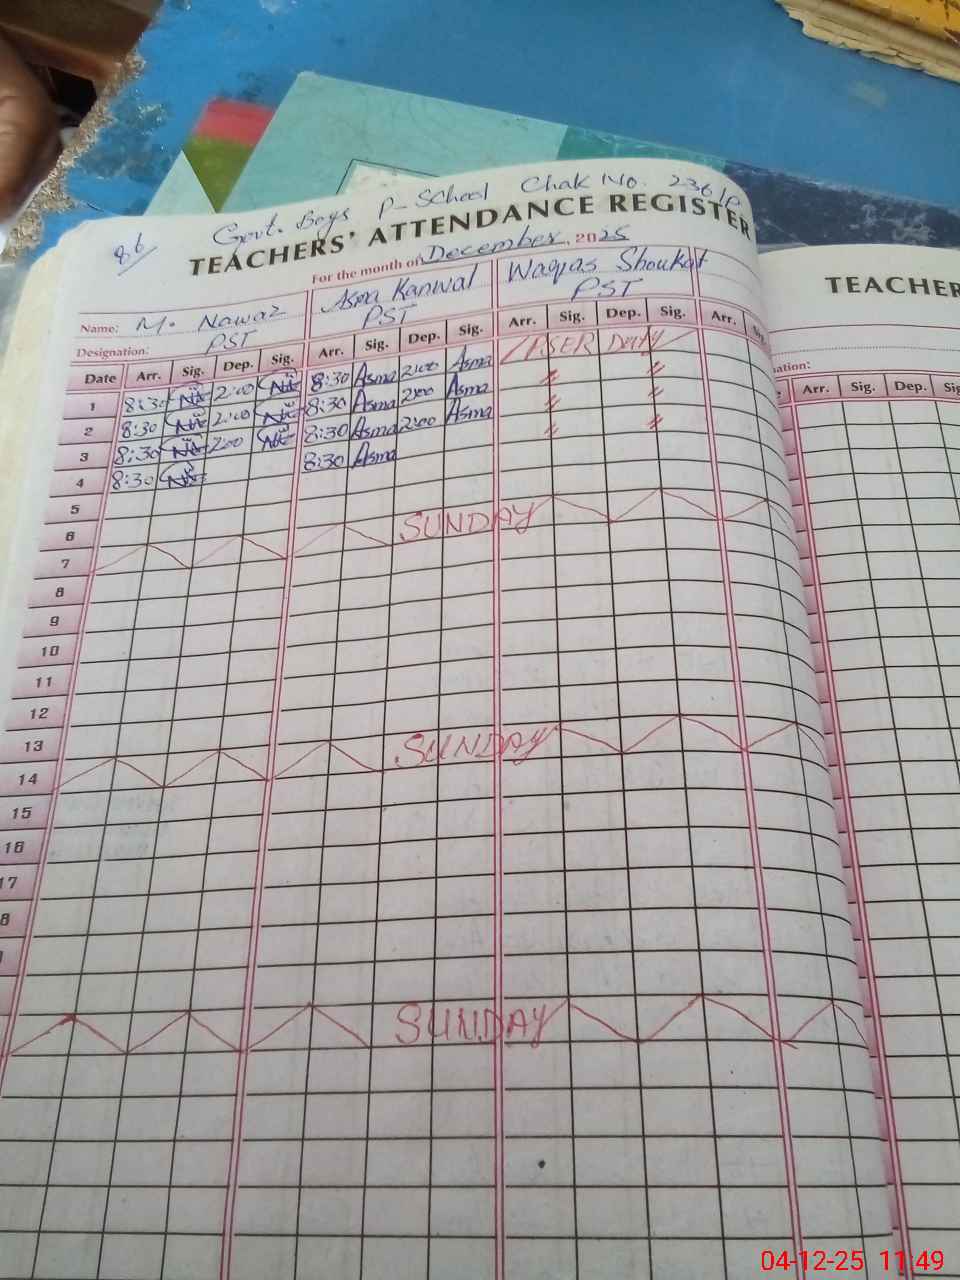 86
Govt. Boys P-School Chak No. 236/P
TEACHERS' ATTENDANCE REGISTER
For the month of December, 2025
Name: M. Nawaz Asma Kanwal Waqas Shoukat
Designation: PST PST PST
Date Arr. Sig. Dep. Sig. Arr. Sig. Dep. Sig. Arr. Sig. Dep. Sig. Arr.
1 8:30 2:00 8:30 Asma 2:00 Asma PSER Duty
2 8:30 2:00 8:30 Asma 2:00 Asma
3 8:30 2:00 8:30 Asma 2:00 Asma
4 8:30 8:30 Asma
5
6
7 SUNDAY
8
9
10
11
12
13
14 SUNDAY
15
16
17
SUNDAY
TEACHER
Arr. Sig. Dep. Sig.
04-12-25 11:49